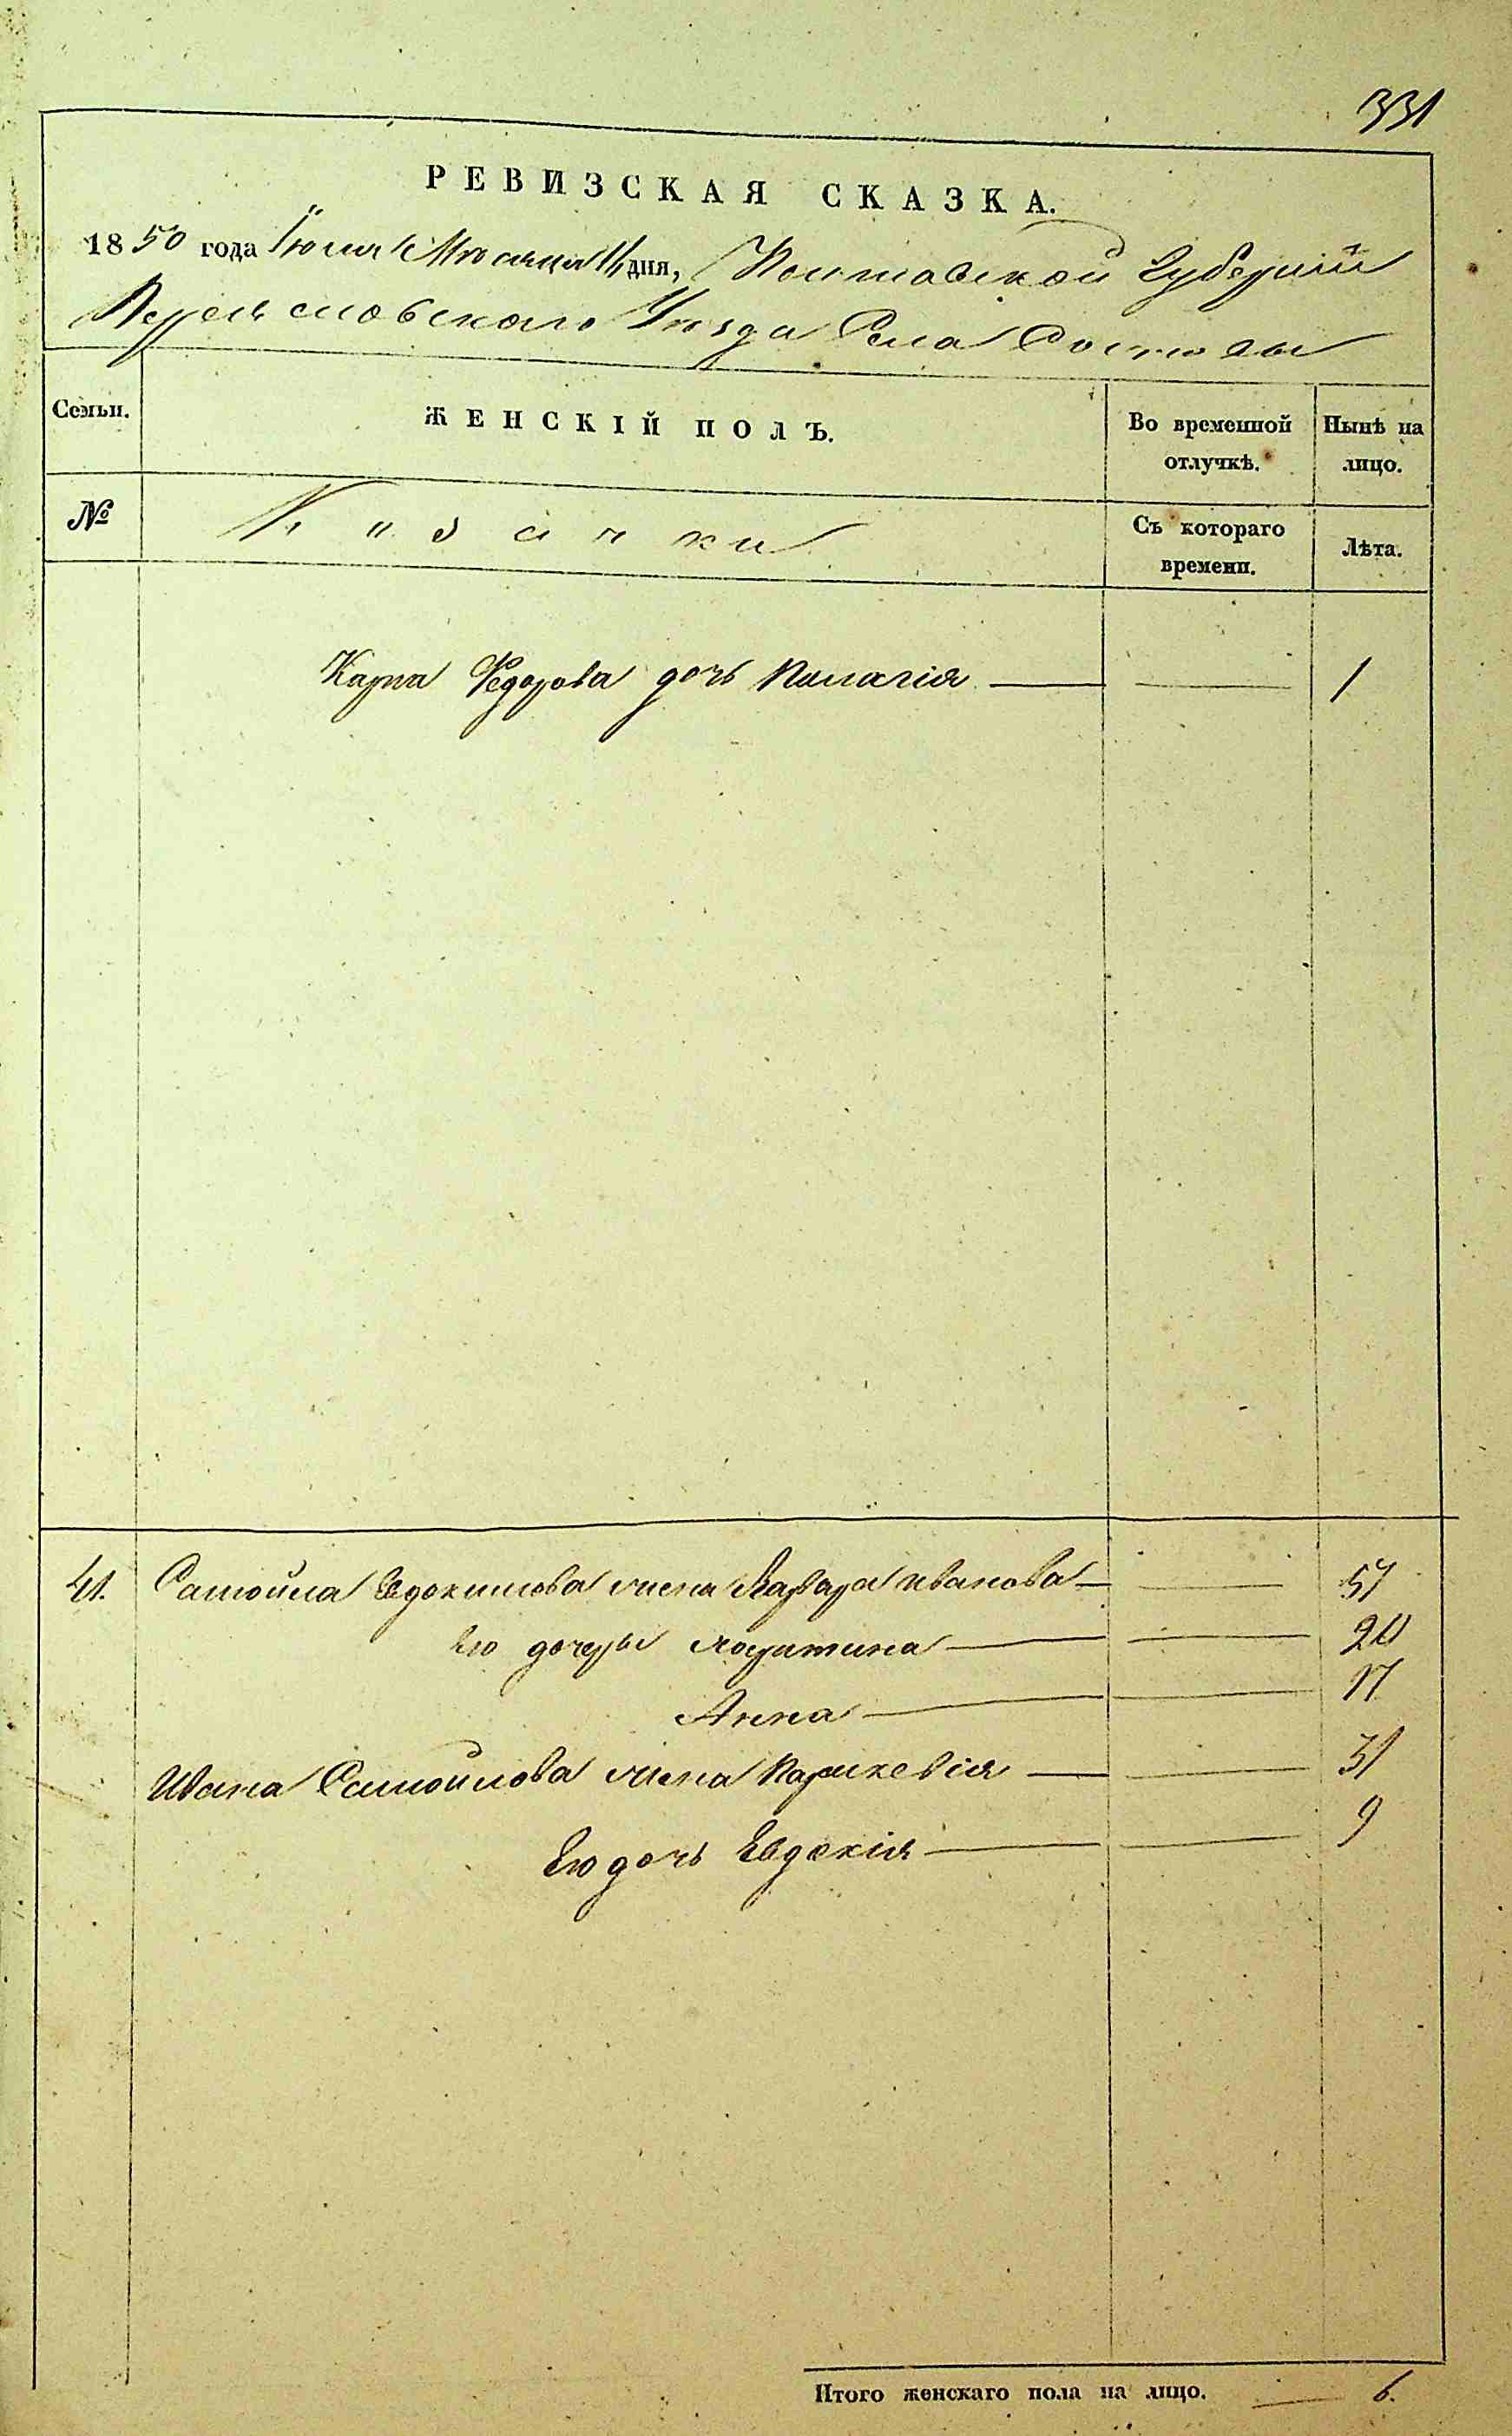 331
РЕВИЗСКАЯ СКАЗКА.
1850 года Іюня Мѣсяца дня, Полтавской Губерніи
Переяславскаго Уѣзда Села
Семьи. ЖЕНСКІЙ ПОЛЪ. Во временной отлучкѣ. Нынѣ на лицо.
№ Козачки Съ котораго времени. Лѣта.
Карпа Федорова дочь Палагія — — 1
41. Самойла Евдокимова жена Варвара Иванова — — 57
Его дочери — — 20
Анна — — 17
Ивана Самойлова жена Параскевія — — 31
Его дочь Евдокія — — 9
Итого женскаго пола на лицо. — 6.